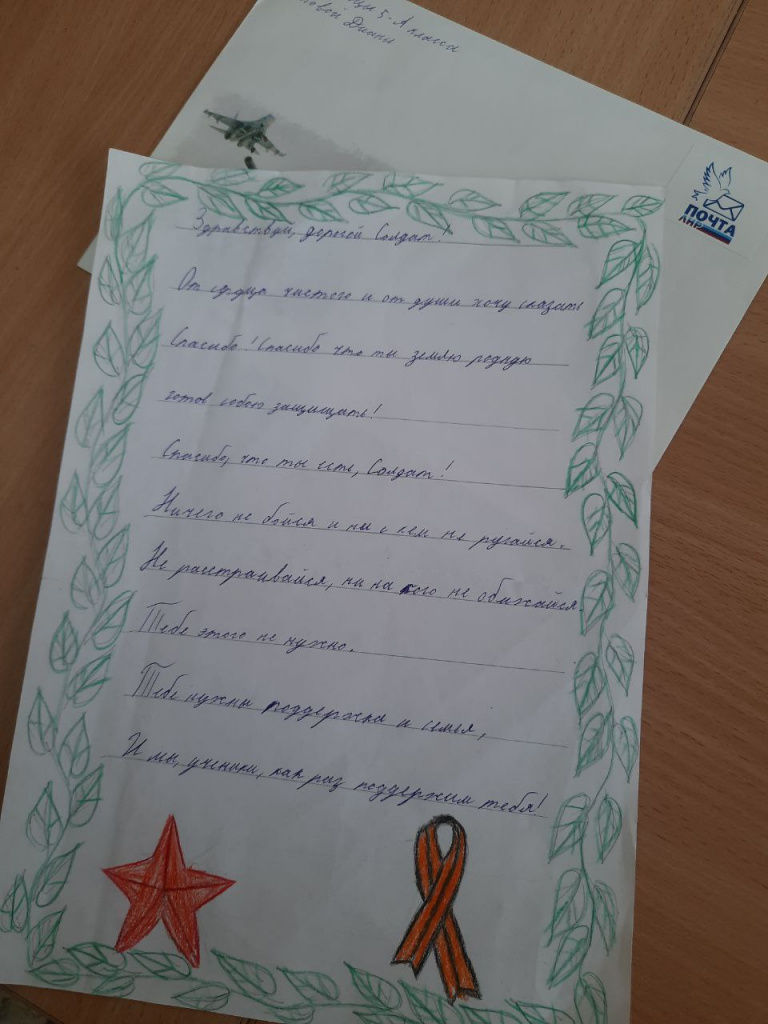 5-А класса
Дианы
ПОЧТА
ЛНР
Здравствуй, дорогой Солдат!
От сердца чистого и от души хочу сказать
Спасибо! Спасибо что ты землю родную
готов собою защищать!
Спасибо, что ты есть, Солдат!
Ничего не бойся и ни с кем не ругайся.
Не расстраивайся, ни на кого не обижайся
Тебе этого не нужно.
Тебе нужны поддержка и семья,
И мы, ученики, как раз поддержим тебя!